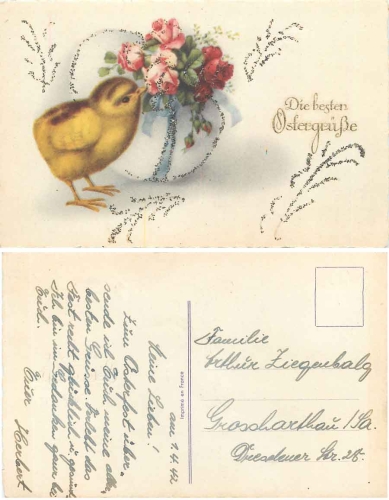 Die besten
Ostergrüße
am 1.4.42
Meine Lieben!
Zum Osterfest über,
sende ich Euch meine aller
besten Grüsse. Verlebt das
Fest recht glücklich u. gesund
Ich bin in Gedanken gern bei
Euch.
Euer Herbert
Imprimé en France
Familie
Arthur Ziegenbalg
Grossharthau i/Sa.
Dresdener Str. 28.